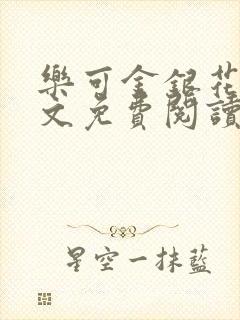 樂可金銀花
文免費閱讀
星空一抹藍